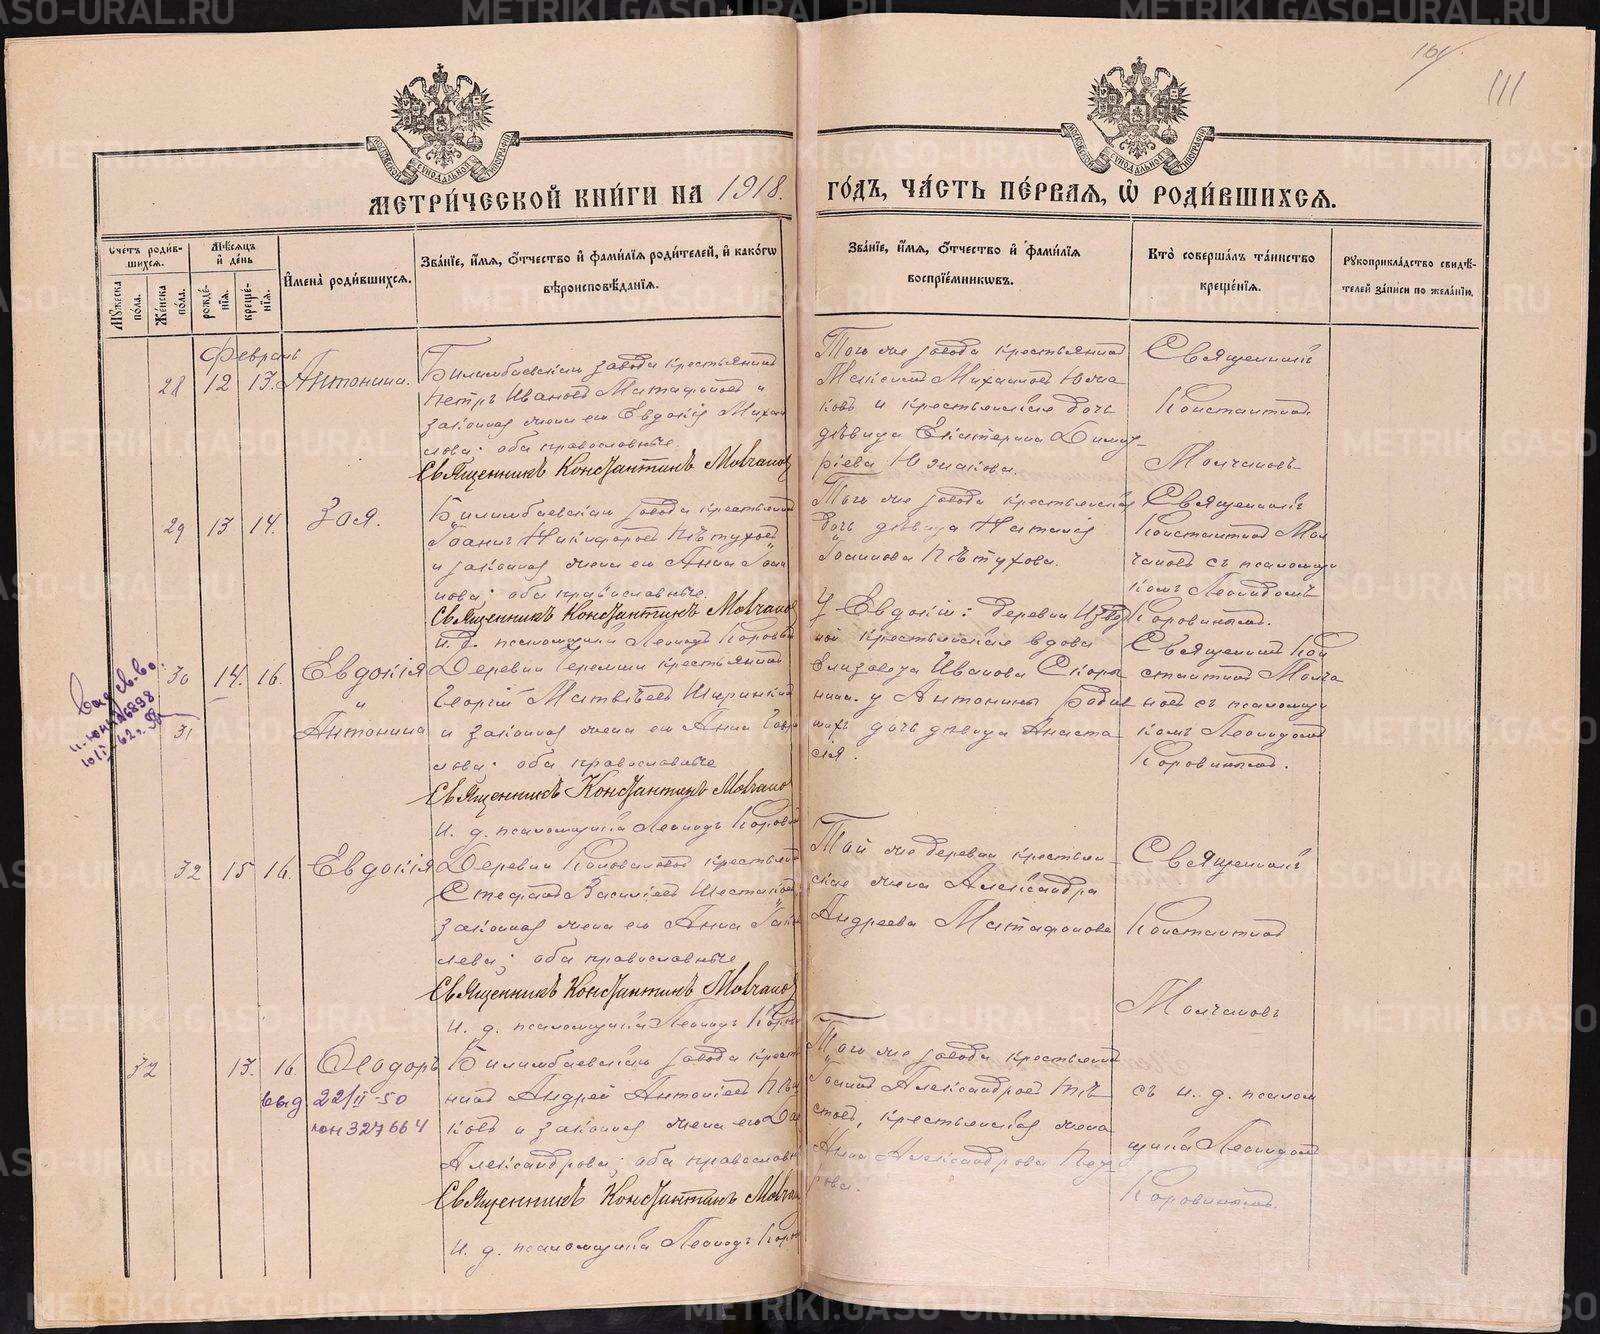 161
111
МОСКОВСКОЙ СѴНОДАЛЬНОЙ ТИПОГРАФІИ
МОСКОВСКОЙ СѴНОДАЛЬНОЙ ТИПОГРАФІИ
МЕТРИ́ЧЕСКОЙ КНИ́ГИ НА 1918.
ГО́ДЪ, ЧА́СТЬ ПЕ́РВАЯ, Ѽ РОДИ́ВШИХСЯ.
Сче́тъ роди́в-
шихся.
Мꙋ́жеска по́ла.
Же́нска по́ла.
Мѣ́сяцъ
и҆ де́нь
рожде́нїя.
креще́нїя.
И҆мена̀ роди́вшихся.
Зва́нїе, и҆́мя, ѻ҆́тчество и҆ фами́лїя роди́телей, и҆ како́гѡ
вѣроисповѣ́данїя.
Зва́нїе, и҆́мя, ѻ҆́тчество и҆ фами́лїя
воспрїе́мникѡвъ.
Кто̀ соверша́лъ та́инство
креще́нїя.
Рꙋкоприкла́дство свидѣ́-
телей за́писи по жела́нїю.
Февраль
28 12 13. Антонина.
Билимбаевскаго завода крестьянинъ
Петръ Ивановъ Матафоновъ и
законная жена его Евдокія Михаи
лова; оба православные.
Священникъ Константинъ Молчановъ
Того же завода крестьянинъ
Максимъ Михаиловъ Южа
ковъ и крестьянская дочь
дѣвица Екатерина Димит-
ріева Южакова.
Священникъ
Константинъ
Молчановъ
29 13 14. Зоя.
Билимбаевскаго завода крестьянинъ
Іоаннъ Никифоровъ Пѣтуховъ
и законная жена его Анна Іоан
нова; оба православные.
Священникъ Константинъ Молчановъ
И. д. псаломщика Леонидъ Коровинъ
Того же завода крестьянская
дочь дѣвица Наталія
Іоаннова Пѣтухова.
Священникъ
Константинъ Мол
чановъ съ псаломщи
комъ Леонидомъ
Коровинымъ.
30 14. 16. Евдокія
"
31 Антонина
Деревни Черемши крестьянинъ
Георгій Матвѣевъ Ширинкинъ
и законная жена его Анна
лова; оба православные
Священникъ Константинъ Молчановъ
и. д. псаломщика Леонидъ Коровинъ
У Евдокіи: деревни
ной крестьянская вдова
Елизавета Иванова Скоры
нина. у Антонины
дочь дѣвица Анаста
сія.
Священникъ Кон
стантинъ Молча
новъ съ псаломщи
комъ Леонидомъ
Коровинымъ.
32 15 16. Евдокія
Деревни Коноваловой крестьянинъ
Стефанъ Василіевъ Шестаковъ
законная жена его Анна Іак
лева; оба православные
Священникъ Константинъ Молчановъ
и. д. псаломщика Леонидъ Коровинъ
Той же деревни крестьян-
ская жена Александра
Андреева Матафонова
Священникъ
Константинъ
Молчановъ
32 13. 16. Ѳеодоръ
выд 22/II-50
юн 327664
Билимбаевскаго завода кресть
нинъ Андрей Антоніевъ
ковъ и законная жена его
Александрова; оба православн
Священникъ Константинъ Молчан
и. д. псаломщика Леонидъ Корови
Того же завода крестьянинъ
Іоаннъ Александровъ
стовъ, крестьянская жена
Анна Александрова
рова.
съ и. д. псалом
щика Леонидомъ
Коровинымъ.
METRIKI.GASO-URAL.RU